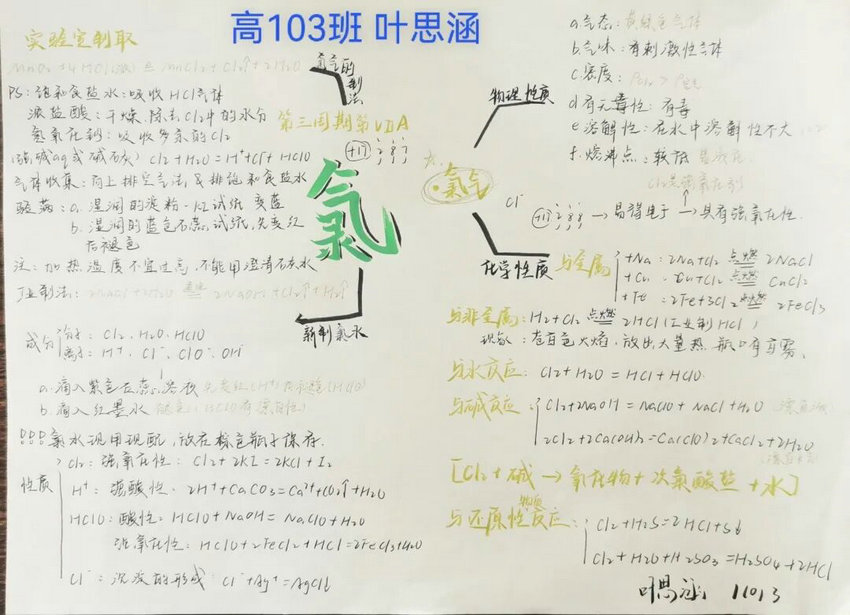 高103班 叶思涵
实验室制取
MnO₂ + 4HCl(浓) ≜ MnCl₂ + Cl₂↑ + 2H₂O
PS: 饱和食盐水: 吸收HCl气体
浓盐酸: 干燥, 除去Cl₂中的水分
氢氧化钠: 吸收多余的Cl₂
(强碱aq或碱石灰) Cl₂+H₂O=H⁺+Cl⁻+HClO
气体收集: 向上排空气法, 排饱和食盐水
验满: a. 湿润的淀粉-KI试纸 变蓝
b. 湿润的蓝色石蕊试纸, 先变红
后褪色
注: 加热温度不宜过高, 不能用澄清石灰水
工业制法: 2NaCl+2H₂O 2NaOH+Cl₂↑+H₂↑
成分 分子: Cl₂、H₂O、HClO
离子: H⁺、Cl⁻、ClO⁻、OH⁻
a. 滴入紫色石蕊溶液 先变红(H⁺)后褪色(HClO)
b. 滴入红墨水 (HClO有漂白性)
氯水现用现配, 放在棕色瓶子保存.
性质
Cl₂: 强氧化性: Cl₂+2KI=2KCl+I₂
H⁺: 强酸性: 2H⁺+CaCO₃=Ca²⁺+CO₂↑+H₂O
HClO: 酸性: HClO+NaOH=NaClO+H₂O
强氧化性: HClO+2FeCl₂+HCl=2FeCl₃+H₂O
Cl⁻: 沉淀的形成: Cl⁻+Ag⁺=AgCl↓
氯气的制法
第三周期第ⅦA
+17 2 8 7
氯
新制氯水
氯气
物理性质
a. 气态: 黄绿色气体
b. 气味: 有刺激性气体
c. 密度:
d. 有无毒性: 有毒
e. 溶解性: 在水中溶解性不大
f. 熔沸点: 较低
Cl₂是强氧化剂
Cl⁻ +17 2 8 8 → 易得电子 → 具有强氧化性.
化学性质
与金属
+Na: 2Na+Cl₂ 点燃 2NaCl
+Cu: Cu+Cl₂ 点燃 CuCl₂
+Fe: 2Fe+3Cl₂ 点燃 2FeCl₃
与非金属: H₂+Cl₂ 点燃 2HCl (工业制HCl)
现象: 苍白色火焰, 放出大量热, 瓶口有白雾.
与水反应: Cl₂+H₂O=HCl+HClO
与碱反应: Cl₂+2NaOH=NaClO+NaCl+H₂O
2Cl₂+2Ca(OH)₂=Ca(ClO)₂+CaCl₂+2H₂O
[Cl₂+碱→氯化物+次氯酸盐+水]
与还原性物质反应: Cl₂+H₂S=2HCl+S↓
Cl₂+H₂O+H₂SO₃=H₂SO₄+2HCl
叶思涵 11013